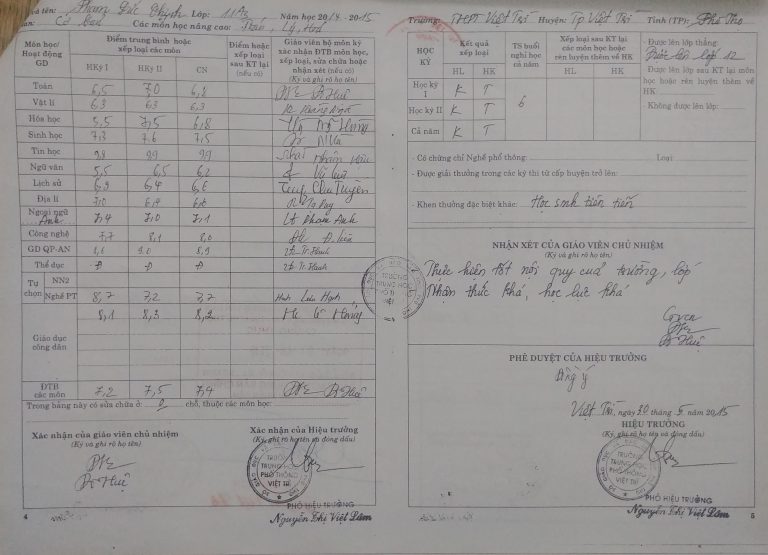 và tên: Phạm Đức Thịnh Lớp: 11A5 Năm học 2014 - 2015
Ban: Cơ bản Các môn học nâng cao: Toán, Lý, Hoá
Môn học/ Hoạt động GD
Điểm trung bình hoặc xếp loại các môn
HKỳ I HKỳ II CN
Điểm hoặc xếp loại sau KT lại (nếu có)
Giáo viên bộ môn ký xác nhận ĐTB môn học, xếp loại, sửa chữa hoặc nhận xét (nếu có)
(Ký và ghi rõ họ tên)
Toán 6,5 7,0 6,8 Huê
Vật lí 6,3 6,3 6,3
Hóa học 5,5 7,5 6,8
Sinh học 7,3 7,6 7,5
Tin học 9,8 9,9 9,9
Ngữ văn 5,5 6,5 6,2
Lịch sử 6,9 6,4 6,6
Địa lí 7,0
Ngoại ngữ Anh 7,4 7,0 7,1 Phạm Anh
Công nghệ 7,7 8,1 8,0
GD QP-AN 9,0 8,9
Thể dục Đ Đ Đ
Tự chọn NN2
Nghề PT 8,7 7,2 7,7 Hạnh
Giáo dục công dân 8,1 8,3 8,2
ĐTB các môn 7,2 7,5 7,4 Huê
Trong bảng này có sửa chữa ở: 0 chỗ, thuộc các môn học:
Xác nhận của giáo viên chủ nhiệm
(Ký và ghi rõ họ tên)
Huê
Xác nhận của Hiệu trưởng
(Ký, ghi rõ họ tên và đóng dấu)
TRƯỜNG
TRUNG HỌC
PHỔ THÔNG
VIỆT TRÌ
PHÓ HIỆU TRƯỞNG
Nguyễn Thị Việt Lâm
4
Trường: THPT Việt Trì Huyện: Tp Việt Trì Tỉnh (TP): Phú Thọ
HỌC KỲ
Kết quả xếp loại
HL HK
TS buổi nghỉ học cả năm
Xếp loại sau KT lại các môn học hoặc rèn luyện thêm về HK
HL HK
Học kỳ I K T
Học kỳ II K T
Cả năm K T
6
- Được lên lớp thẳng:
Được lên lớp 12
- Được lên lớp sau KT lại môn học hoặc rèn luyện thêm về HK:
- Không được lên lớp:
- Có chứng chỉ Nghề phổ thông: Loại:
- Được giải thưởng trong các kỳ thi từ cấp huyện trở lên:
- Khen thưởng đặc biệt khác: Học sinh tiên tiến
NHẬN XÉT CỦA GIÁO VIÊN CHỦ NHIỆM
(Ký và ghi rõ họ tên)
Thực hiện tốt nội quy của trường, lớp
Nhận thức khá, học lực khá
Gvcn
Huê
PHÊ DUYỆT CỦA HIỆU TRƯỞNG
Đồng ý
Việt Trì, ngày 30 tháng 5 năm 2015
HIỆU TRƯỞNG
(Ký, ghi rõ họ tên và đóng dấu)
TRƯỜNG
TRUNG HỌC
PHỔ THÔNG
VIỆT TRÌ
PHÓ HIỆU TRƯỞNG
Nguyễn Thị Việt Lâm
5